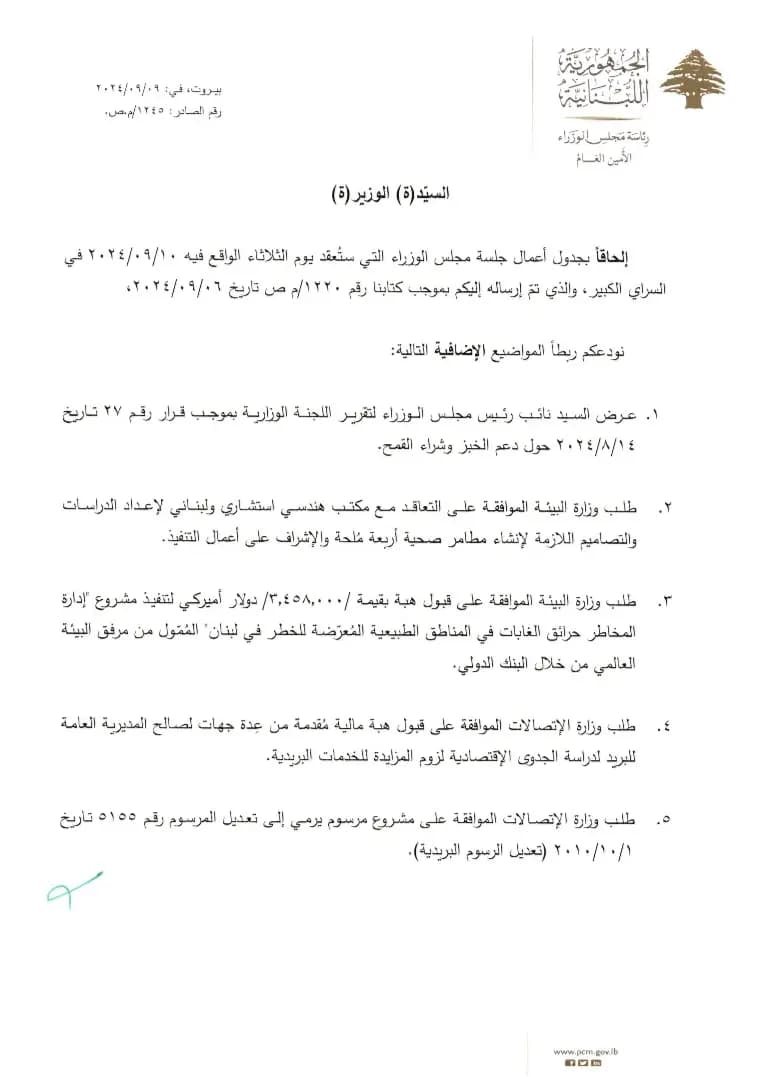 الجمهورية
اللبنانية
رئاسة مجلس الوزراء
الأمين العام
بيروت، في: ٢٠٢٤/٠٩/٠٩
رقم الصادر: ١٢٤٥/م.ص.
السيّد(ة) الوزير(ة)
إلحاقاً بجدول أعمال جلسة مجلس الوزراء التي ستُعقد يوم الثلاثاء الواقع فيه ٢٠٢٤/٠٩/١٠ في
السراي الكبير، والذي تمّ إرساله إليكم بموجب كتابنا رقم ١٢٢٠/م ص تاريخ ٢٠٢٤/٠٩/٠٦،
نودعكم ربطاً المواضيع الإضافية التالية:
١. عرض السيد نائب رئيس مجلس الوزراء لتقرير اللجنة الوزارية بموجب قرار رقم ٢٧ تاريخ
٢٠٢٤/٨/١٤ حول دعم الخبز وشراء القمح.
٢. طلب وزارة البيئة الموافقة على التعاقد مع مكتب هندسي استشاري ولبناني لإعداد الدراسات
والتصاميم اللازمة لإنشاء مطامر صحية أربعة مُلحة والإشراف على أعمال التنفيذ.
٣. طلب وزارة البيئة الموافقة على قبول هبة بقيمة /٣,٤٥٨,٠٠٠/ دولار أميركي لتنفيذ مشروع "إدارة
المخاطر حرائق الغابات في المناطق الطبيعية المُعرّضة للخطر في لبنان" المُمّول من مرفق البيئة
العالمي من خلال البنك الدولي.
٤. طلب وزارة الإتصالات الموافقة على قبول هبة مالية مُقدمة من عِدة جهات لصالح المديرية العامة
للبريد لدراسة الجدوى الإقتصادية لزوم المزايدة للخدمات البريدية.
٥. طلب وزارة الإتصالات الموافقة على مشروع مرسوم يرمي إلى تعديل المرسوم رقم ٥١٥٥ تاريخ
٢٠١٠/١٠/١ (تعديل الرسوم البريدية).
www.pcm.gov.lb